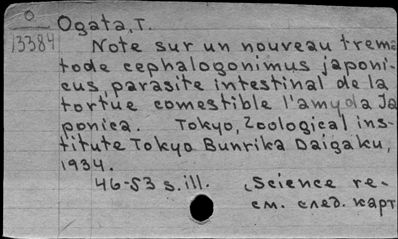 O
13384
Ogata, T.
Note sur un nouveau trema
tode cephalogonimus japoni-
cus, parasite intestinal de la
tortue comestible l'amyda Ja
ponica. Tokyo, Zoological ins-
titute Tokyo Bunrika Daigaku,
1934.
46-53 s. ill. (Science re-
см. след. карт